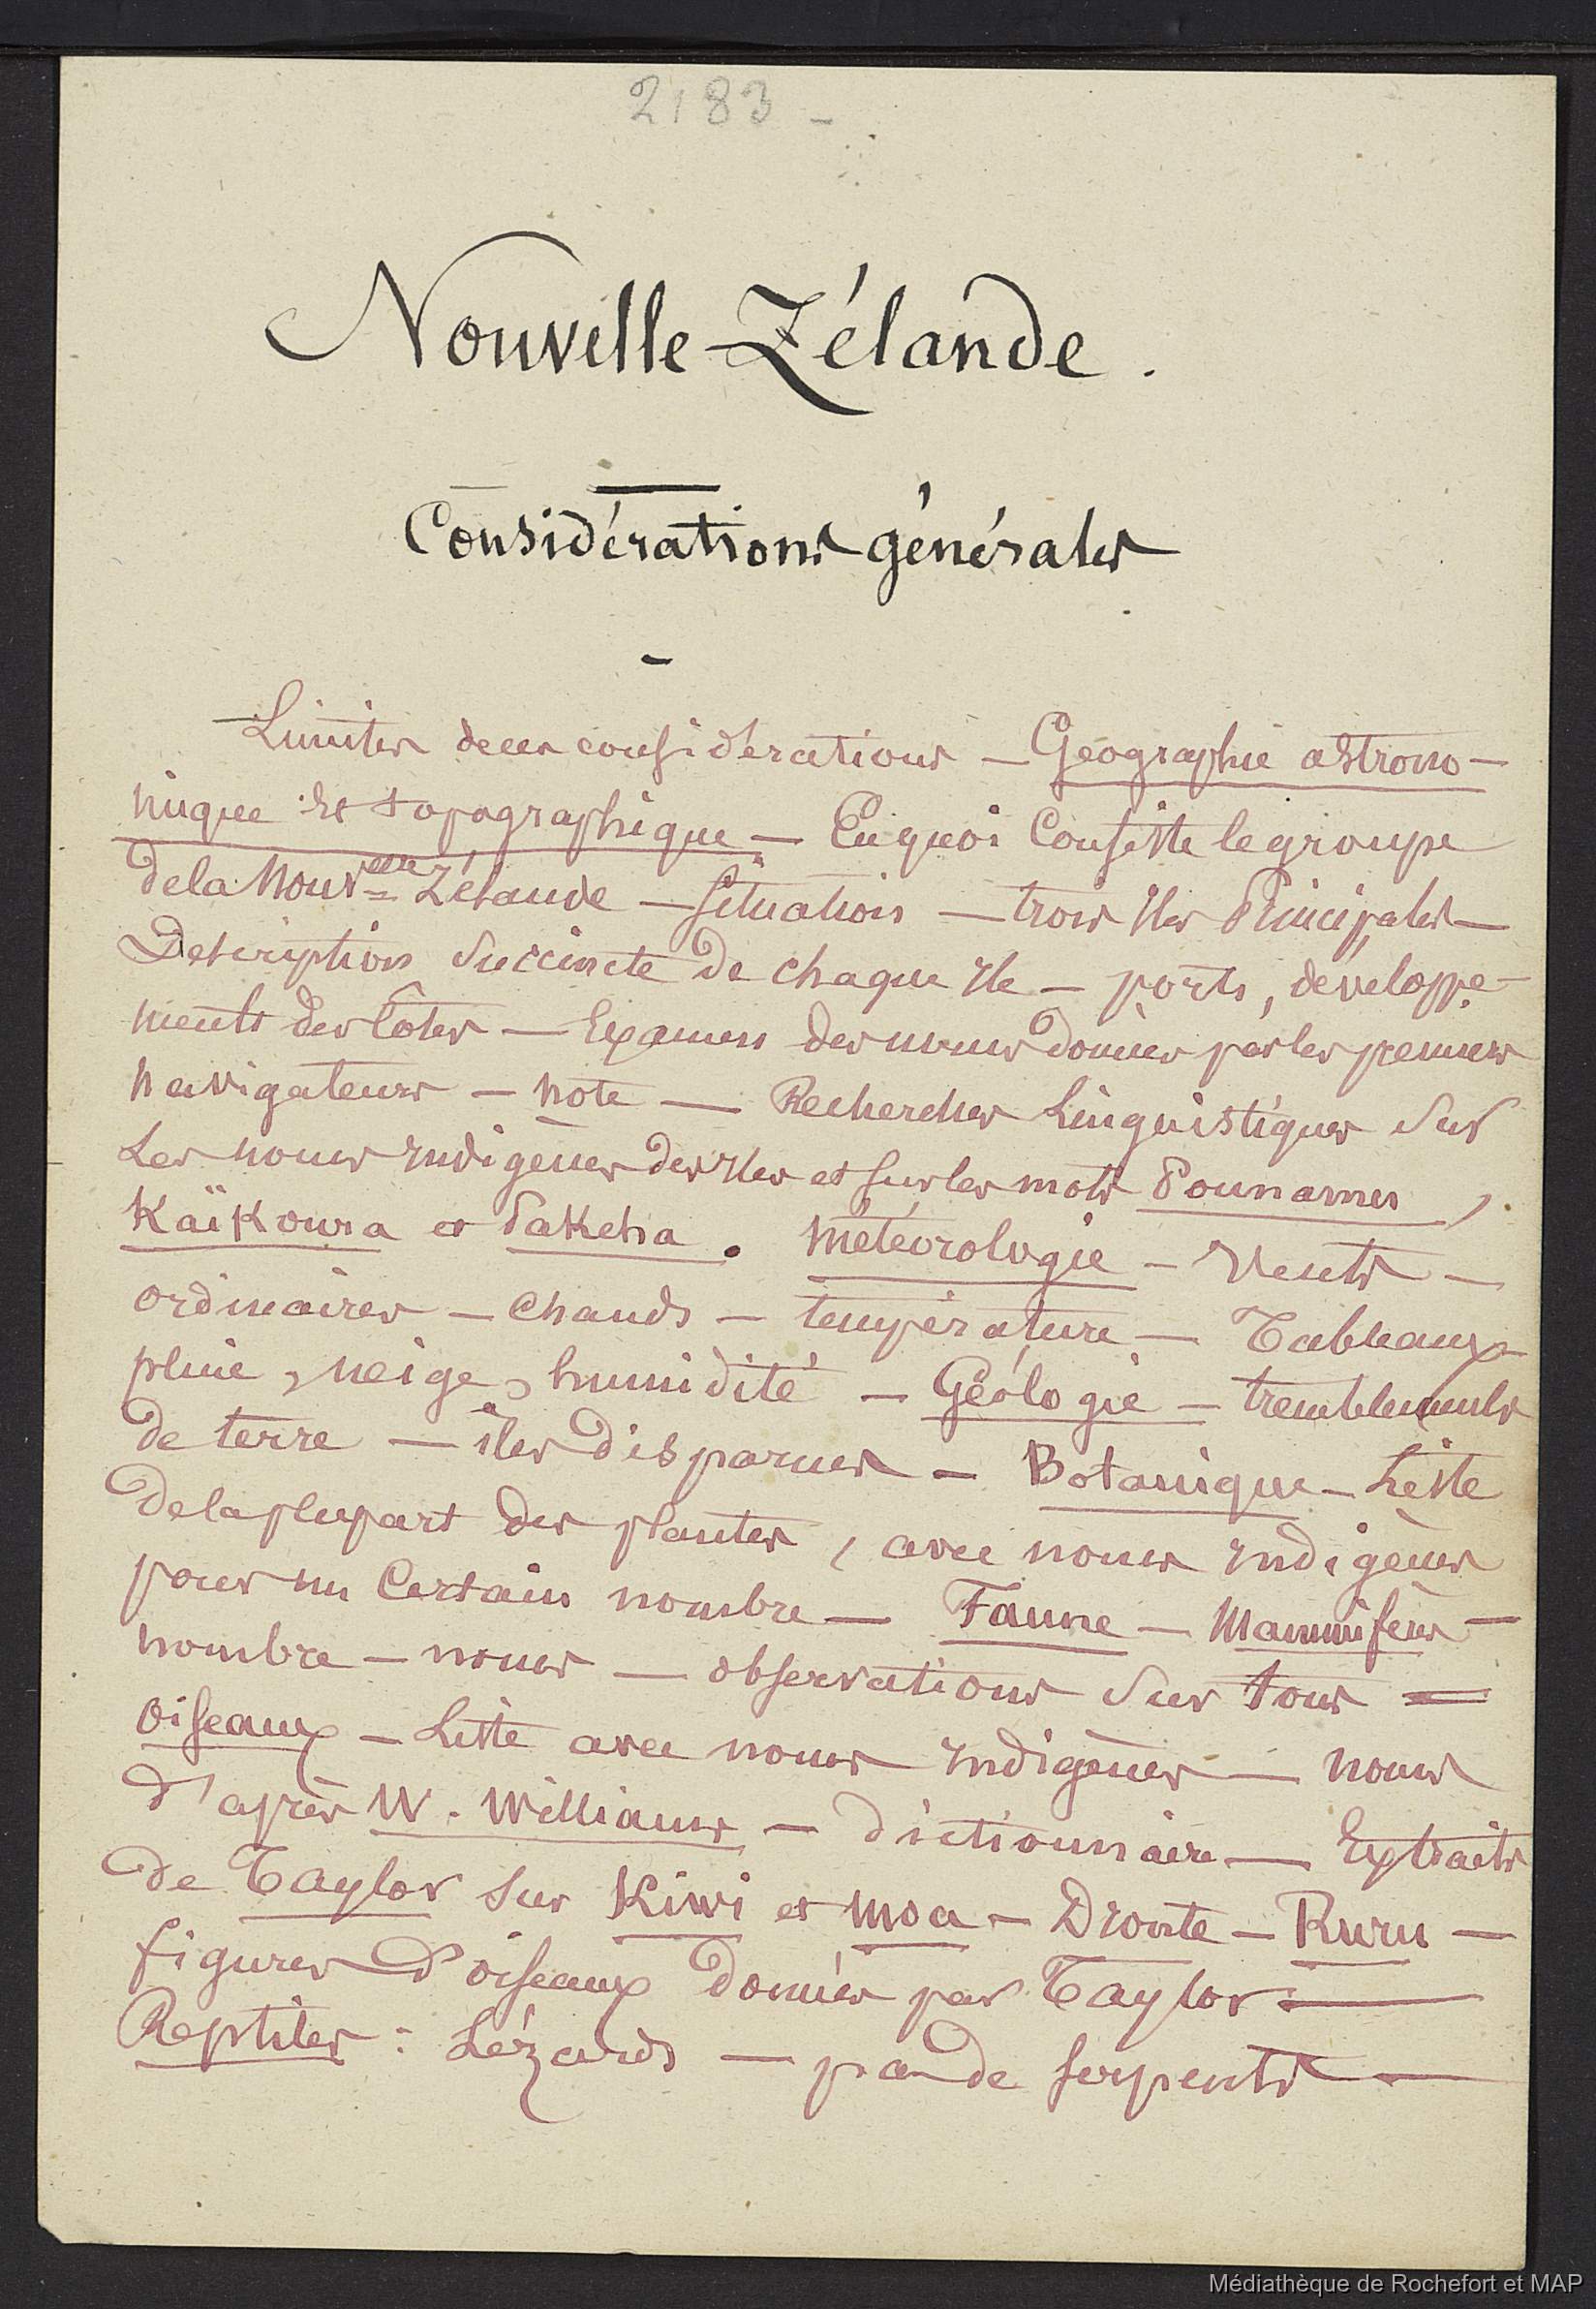 2183 -
Nouvelle-Zélande.
Considérations générales
-
Limites de ces considérations — Géographie astrono-
mique et topographique — En quoi consiste le groupe
de la Nouv.elle Zélande — Situation — trois Iles Principales —
Description succincte de chaque Ile — ports, développe-
ments des Côtes — Examen des noms donnés par les premiers
navigateurs — note — Recherches Linguistiques sur
Les noms indigènes des Iles et sur les mots Pounamu,
Kaïkoura et Pakeha. Météorologie — Vents —
ordinaires — chauds — température — Tableaux
pluie, neige, humidité — Géologie — tremblements
de terre — îles disparues — Botanique — Liste
de la plupart des plantes, avec noms indigènes
pour un certain nombre — Faune — Mammifères —
nombre — noms — observations sur tous =
Oiseaux — Liste avec noms indigènes — noms
d'après W. Williams — dictionnaire — Extraits
de Taylor sur Kiwi et Moa — Dronte — Ruru —
figures d'oiseaux donnés par Taylor —
Reptiles : Lézards — pas de serpents —
Médiathèque de Rochefort et MAP